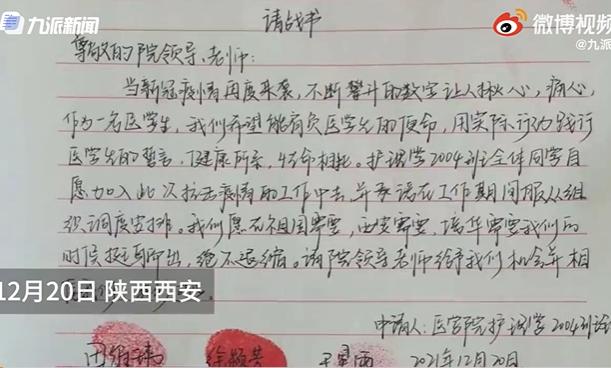 九派新闻
微博视频
@九派
请战书
尊敬的院领导、老师:
当新冠疫情再度来袭,不断攀升的数字让人揪心,痛心,
作为一名医学生,我们希望能肩负医学生的使命,用实际行动践行
医学生的誓言,健康所系,性命相托。护理学2004班全体同学自
愿加入此次抗击疫情的工作中去,并承诺在工作期间服从组
织调度安排。我们愿在祖国需要,西安需要,培华需要我们的
时候挺身而出,绝不退缩。请院领导老师给予我们机会并相
12月20日 陕西西安
申请人:医学院护理学2004班
2021年12月20日